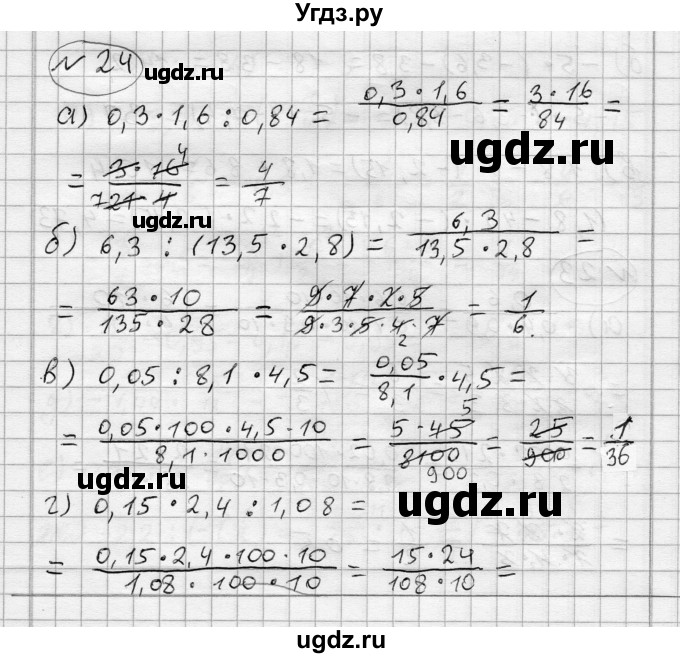 Угдз.ру
№ 24
ugdz.ru
а) 0,3 · 1,6 : 0,84 = (0,3 · 1,6)/0,84 = (3 · 16)/84 =
ugdz.ru
= (3 · 16 4)/(7 21 · 4) = 4/7
ugdz.ru
б) 6,3 : (13,5 · 2,8) = 6,3/(13,5 · 2,8) =
= (63 · 10)/(135 · 28) = (9 · 7 · 2 · 5)/(9 · 3 · 5 · 4 2 · 7) = 1/6.
ugdz.ru
в) 0,05 : 8,1 · 4,5 = 0,05/8,1 · 4,5 =
= (0,05 · 100 · 4,5 · 10)/(8,1 · 1000) = (5 · 45 5)/(8100 900) = 25/900 = 1/36
ugdz.ru
г) 0,15 · 2,4 : 1,08 =
ugdz.ru
= (0,15 · 2,4 · 100 · 10)/(1,08 · 100 · 10) = (15 · 24)/(108 · 10) =
ugdz.ru